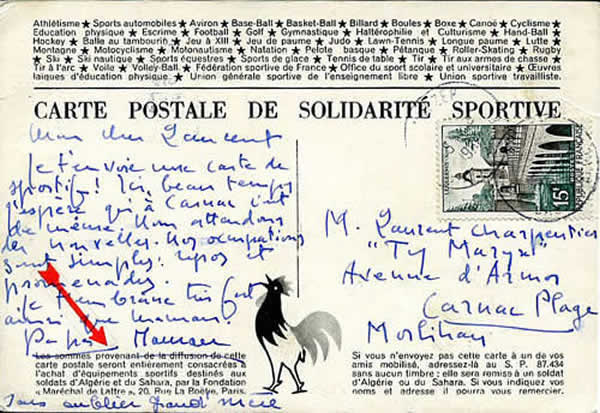 Athlétisme ★ Sports automobiles ★ Aviron ★ Base-Ball ★ Basket-Ball ★ Billard ★ Boules ★ Boxe ★ Canoë ★ Cyclisme ★
Education physique ★ Escrime ★ Football ★ Golf ★ Gymnastique ★ Haltérophilie et Culturisme ★ Hand-Ball
Hockey ★ Balle au tambourin ★ Jeu à XIII ★ Jeu de paume ★ Judo ★ Lawn-Tennis ★ Longue paume ★ Lutte ★
Montagne ★ Motocyclisme ★ Motonautisme ★ Natation ★ Pelote basque ★ Pétanque ★ Roller-Skating ★ Rugby
★ Ski ★ Ski nautique ★ Sports équestres ★ Sports de glace ★ Tennis de table ★ Tir ★ Tir aux armes de chasse ★
Tir à l'arc ★ Voile ★ Volley-Ball ★ Fédération sportive de France ★ Office du sport scolaire et universitaire ★ Œuvres
laïques d'éducation physique ★ Union générale sportive de l'enseignement libre ★ Union sportive travailliste.
CARTE POSTALE DE SOLIDARITÉ SPORTIVE
Mon cher Laurent
Je t'envoie une carte de
sportif! Ici, beau temps
j'espère qu'à Carnac c'est
de même. Nous attendons
des nouvelles. Nos occupations
sont simples: repos et
promenades.
Je t'embrasse très fort
ainsi que maman.
Papa
Sans oublier grand'mère
15F
RÉPUBLIQUE FRANÇAISE
M. Laurent Charpentier
"Ty
Avenue d'Armor
Carnac Plage
Morbihan
Les sommes provenant de la diffusion de cette
carte postale seront entièrement consacrées à
l'achat d'équipements sportifs destinés aux
soldats d'Algérie et du Sahara, par la Fondation
« Maréchal de Lattre », 20, Rue La Boëtie, Paris.
Si vous n'envoyez pas cette carte à un de vos
amis mobilisé, adressez-là au S. P. 87.434
sans aucun timbre ; elle sera remise à un soldat
d'Algérie ou du Sahara. Si vous indiquez vos
noms et adresse il pourra vous en remercier.